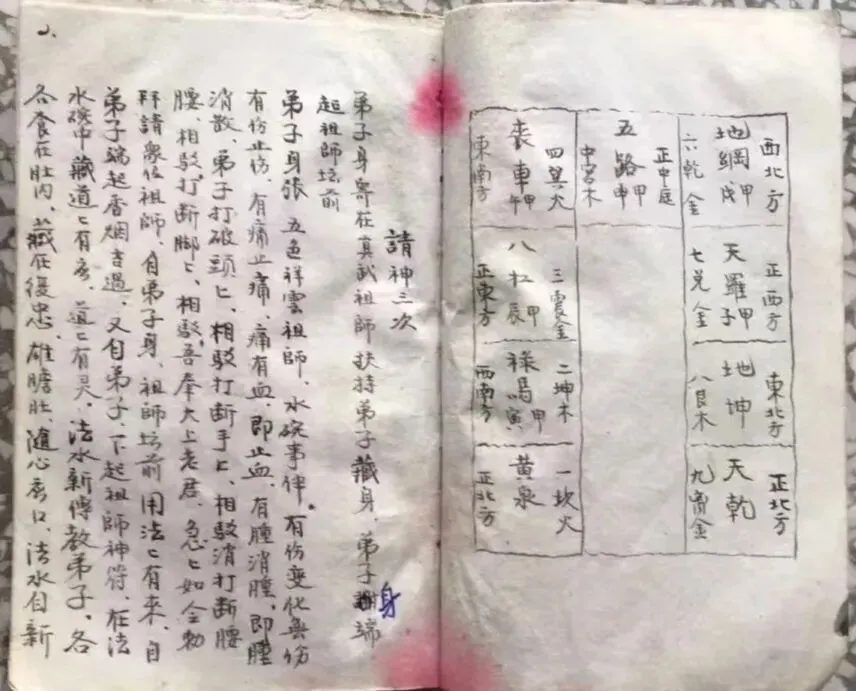 西北方
地網甲戌
六乾金
正西方
天羅甲子
七兑金
東北方
地坤
八艮木
正北方
天乾
九离金
正中庭
五路甲申
中宮木
四巽火
喪車甲午
東南方
三震金
八杠甲辰
正東方
二坤木
祿馬甲寅
西南方
一坎火
黄泉
正北方
2、
請神三次
弟子身寄在真武祖師扶持弟子藏身、弟子身端
起祖師坛前
弟子身張五色祥雲祖師、水碗事伴。有伤变化無伤
有伤止伤、有痛止痛、痛有血、即止血、有腫消腫、即腫
消散、弟子打破頭匕、相駁打断手匕、相駁消打断腰
腰、相駁打断脚匕、相駁吾奉大上老君、急匕如令勅
拜請衆位祖師、自弟子身、祖師坛前用法匕有來、自
弟子端起香烟吉過、又自弟子、下起祖師神符、在法
水碗中藏道匕有灵、道匕有灵、法水新傳教弟子、各
各食在肚内、藏在後忠、雄膽肚随心應口、法水自新